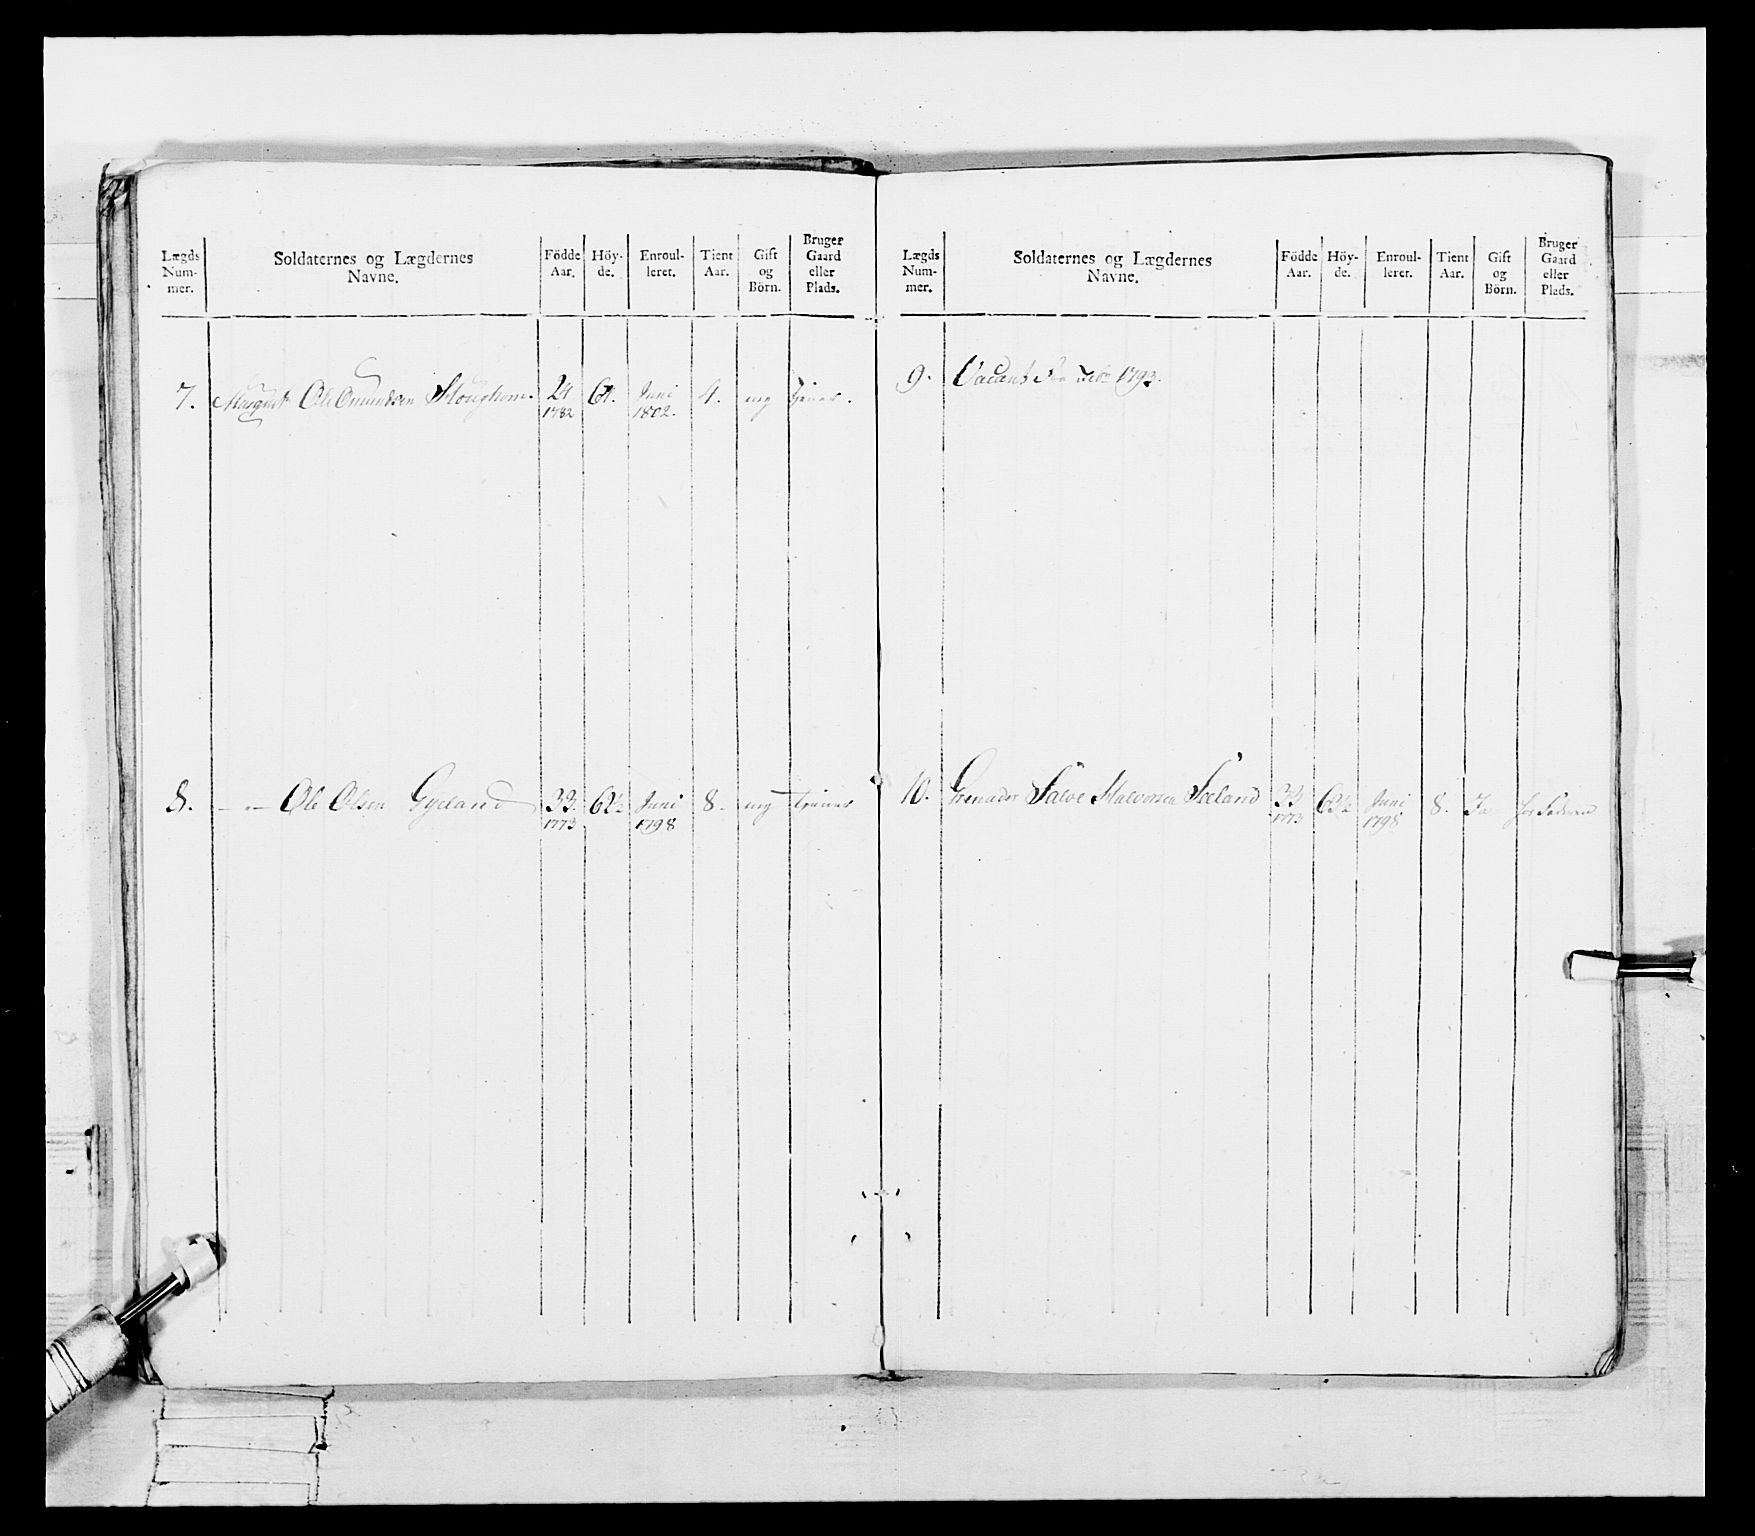 Lægds Num- mer. Soldaternes og Lægdernes Navne. Födde Aar. Höy- de. Enroul- leret. Tient Aar. Gift og Börn. Bruger Gaard eller Plads.
7. Ole Omundsen 24 1782 61. Juni 1802. 4. ug tjener.
8. — " — Ole Olsen Gyeland 33. 1773 62½ Juni 1798 8. ug tjener
Lægds Num- mer. Soldaternes og Lægdernes Navne. Födde Aar. Höy- de. Enroul- leret. Tient Aar. Gift og Börn. Bruger Gaard eller Plads.
9. Vacant 1793.
10. Grenader Salve Halvorsen 33 1773 63½ Juni 1798 8. Ja hos Faderen